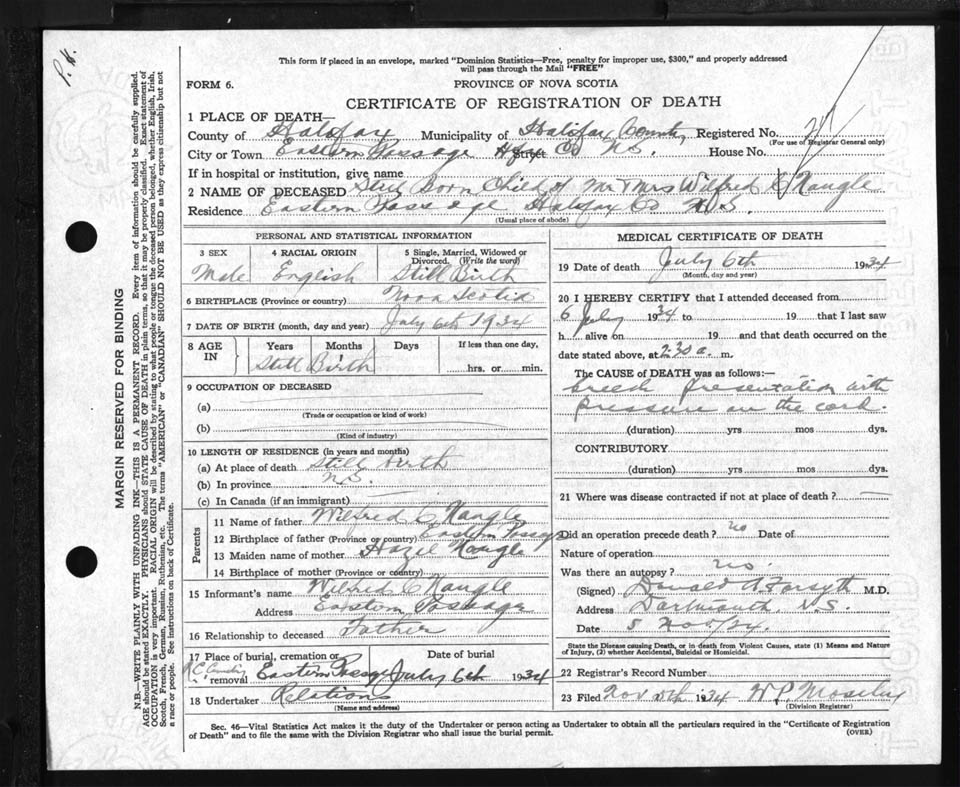 P. H.
This form if placed in an envelope, marked "Dominion Statistics—Free, penalty for improper use, $300," and properly addressed
will pass through the Mail "FREE"
FORM 6.
PROVINCE OF NOVA SCOTIA
CERTIFICATE OF REGISTRATION OF DEATH
1 PLACE OF DEATH—
County of Halifax Municipality of Halifax County Registered No.
(For use of Registrar General only)
City or Town Eastern Passage Hfx Street Co N.S. House No.
If in hospital or institution, give name
2 NAME OF DECEASED Still Born Child of Mr & Mrs Wilfred C Naugle
Residence Eastern Passage Halifax Co N.S.
(Usual place of abode)
PERSONAL AND STATISTICAL INFORMATION
3 SEX 4 RACIAL ORIGIN 5 Single, Married, Widowed or
Divorced. (Write the word)
Male English Still Birth
6 BIRTHPLACE (Province or country) Nova Scotia
7 DATE OF BIRTH (month, day and year) July 6th 1934
8 AGE IN Years Months Days If less than one day,
Still Birth hrs. or min.
9 OCCUPATION OF DECEASED
(a)
(Trade or occupation or kind of work)
(b)
(Kind of industry)
10 LENGTH OF RESIDENCE (in years and months)
(a) At place of death Still birth
(b) In province N.S.
(c) In Canada (if an immigrant)
Parents
11 Name of father Wilfred C Naugle
12 Birthplace of father (Province or country) Eastern Passage
13 Maiden name of mother Hazel Naugle
14 Birthplace of mother (Province or country)
15 Informant's name Wilfred C Naugle
Address Eastern Passage
16 Relationship to deceased Father
17 Place of burial, cremation or Date of burial
removal Eastern Passage July 6th 1934
18 Undertaker Relations
(Name and address)
MEDICAL CERTIFICATE OF DEATH
19 Date of death July 6th 1934
(Month, day and year)
20 I HEREBY CERTIFY that I attended deceased from
6 July 1934 to 19 that I last saw
h alive on 19 and that death occurred on
date stated above, at 2:30 a. m.
The CAUSE of DEATH was as follows:—
breech presentation with
pressure on the cord.
(duration) yrs mos dys.
CONTRIBUTORY
(duration) yrs mos dys.
21 Where was disease contracted if not at place of death?
Did an operation precede death? no Date of
Nature of operation
Was there an autopsy? no
(Signed) Donald A Forsyth M.D.
Address Dartmouth, N.S.
Date 5 Nov/34.
State the Disease causing Death, or in death from Violent Causes, state (1) Means and Nature
of Injury, (2) whether Accidental, Suicidal or Homicidal.
22 Registrar's Record Number
23 Filed Nov 1934
(Division Registrar)
Sec. 46—Vital Statistics Act makes it the duty of the Undertaker or person acting as Undertaker to obtain all the particulars required in the "Certificate of Registration
of Death" and to file the same with the Division Registrar who shall issue the burial permit.
(OVER)
MARGIN RESERVED FOR BINDING
N.B.—WRITE PLAINLY WITH UNFADING INK—THIS IS A PERMANENT RECORD. Every item of information should be carefully supplied.
AGE should be stated EXACTLY. PHYSICIANS should STATE CAUSE OF DEATH in plain terms, so that it may be properly classified. Exact statement of
OCCUPATION is very important. RACIAL ORIGIN will be described by stating to what people or tongue the deceased person belonged, whether English, Irish,
Scotch, French, German, Russian, Ruthenian, etc. The terms "AMERICAN" or "CANADIAN" SHOULD NOT BE USED as they express citizenship but not
a race or people. See instructions on back of Certificate.